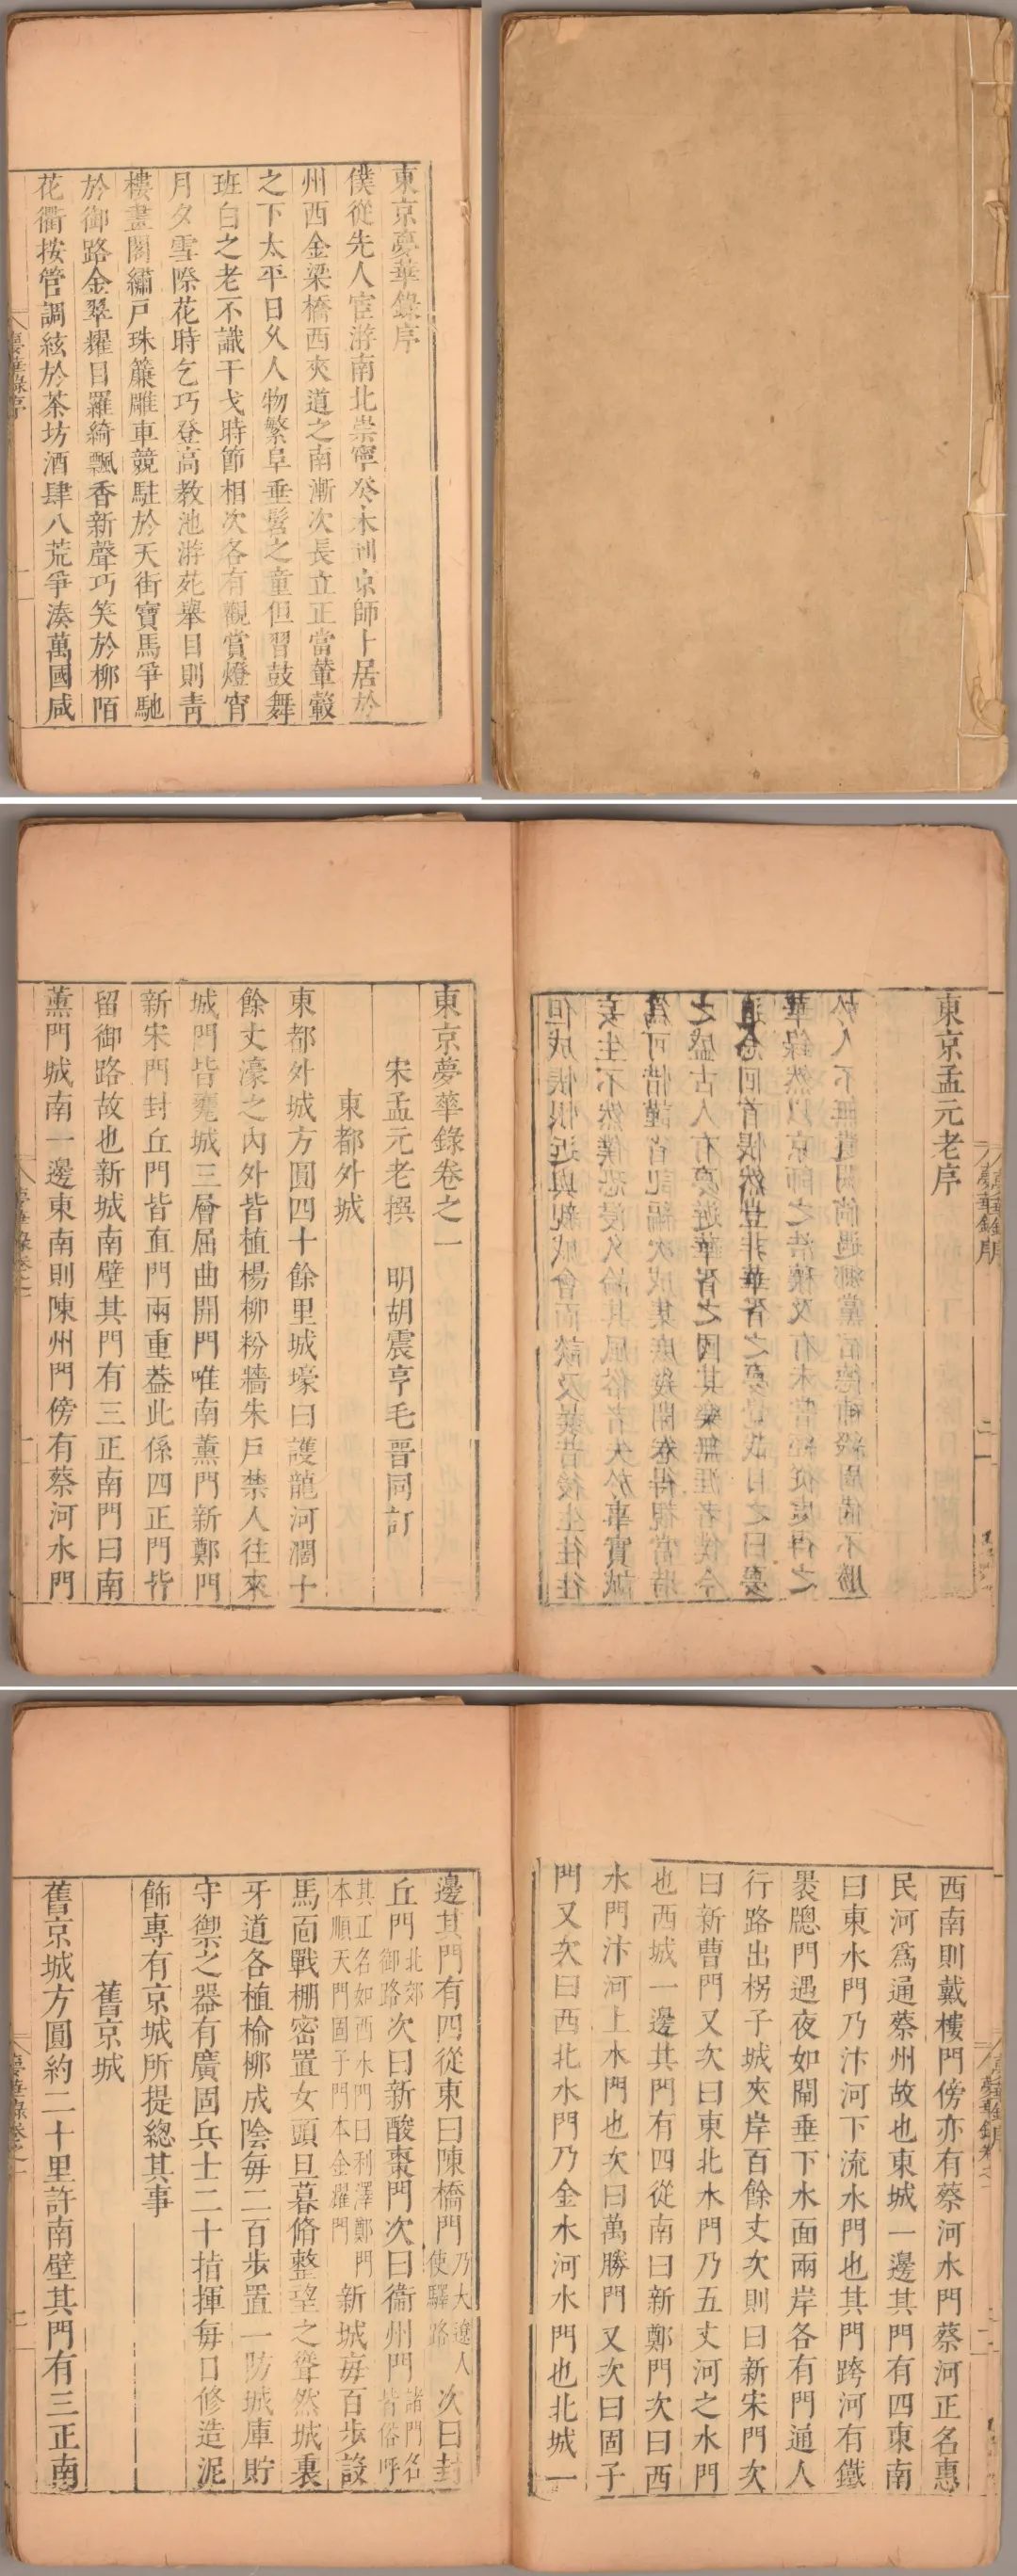 東京夢華錄序
僕從先人宦游南北崇寧癸未到京師卜居於
州西金梁橋西夾道之南漸次長立正當輦轂
之下太平日久人物繁阜垂髫之童但習鼓舞
班白之老不識干戈時節相次各有觀賞燈宵
月夕雪際花時乞巧登高教池游苑舉目則青
樓畫閣繡戶珠簾雕車競駐於天街寶馬爭馳
於御路金翠耀目羅綺飄香新聲巧笑於柳陌
花衢按管調絃於茶坊酒肆八荒爭湊萬國咸
夢華錄序
東京孟元老序
東京夢華錄卷之一
宋孟元老撰 明胡震亨毛晉同訂
東都外城
東都外城方圓四十餘里城壕曰護龍河濶十
餘丈濠之內外皆植楊柳粉牆朱戶禁人往來
城門皆甕城三層屈曲開門唯南薰門新鄭門
新宋門封丘門皆直門兩重葢此係四正門皆
留御路故也新城南壁其門有三正南門曰南
薰門城南一邊東南則陳州門傍有蔡河水門
夢華錄卷之一
西南則戴樓門傍亦有蔡河水門蔡河正名惠
民河爲通蔡州故也東城一邊其門有四東南
曰東水門乃汴河下流水門也其門跨河有鐵
裹牕門遇夜如閘垂下水面兩岸各有門通人
行路出柺子城夾岸百餘丈次則曰新宋門次
曰新曹門又次曰東北水門乃五丈河之水門
也西城一邊其門有四從南曰新鄭門次曰西
水門汴河上水門也次曰萬勝門又次曰固子
門又次曰西北水門乃金水河水門也北城一
邊其門有四從東曰陳橋門乃大遼人使驛路次曰封
丘門北郊御路次曰新酸棗門次曰衞州門諸門名皆俗呼
其正名如西水門曰利澤鄭門本順天門固子門本金耀門新城每百步設
馬面戰棚密置女頭旦暮脩整望之聳然城裏
牙道各植榆柳成陰每二百步置一防城庫貯
守禦之器有廣固兵士二十指揮每日修造泥
飾專有京城所提總其事
舊京城
舊京城方圓約二十里許南壁其門有三正南
夢華錄卷之一
二